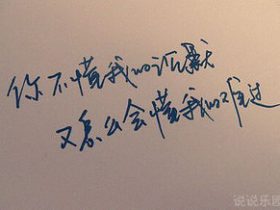 你不懂我的沉默
又怎么会懂我的难过
说说乐园